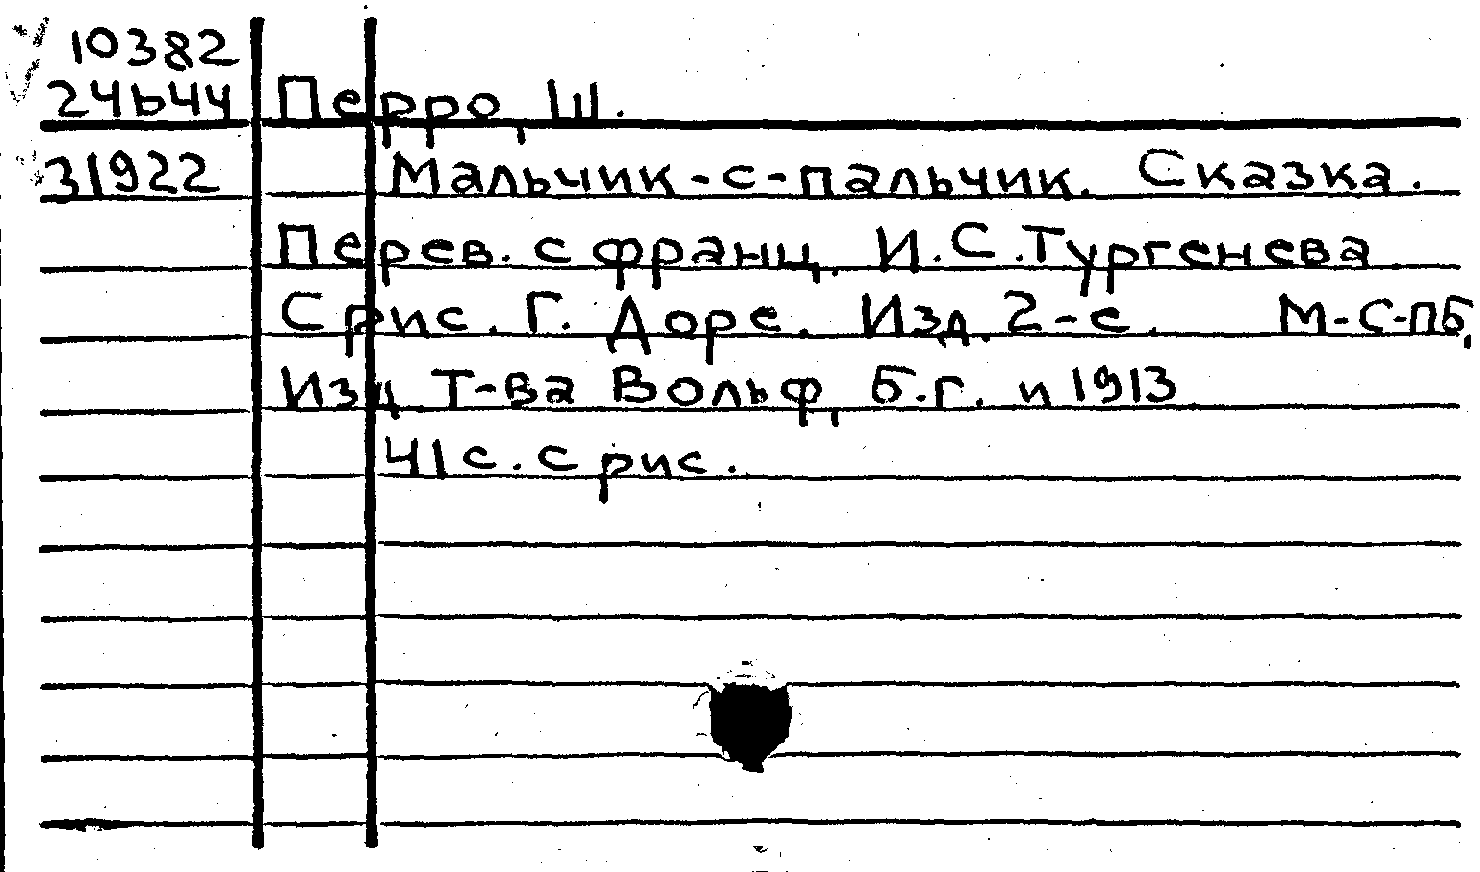 10382
24644 Перро, Ш.
31922 Мальчик-с-пальчик. Сказка.
Перев. с франц. И.С.Тургенева
С рис. Г. Доре. Изд. 2-е. М-С-пб,
Изд. Т-ва Вольф, Б.г. и 1913
41 с. с рис.